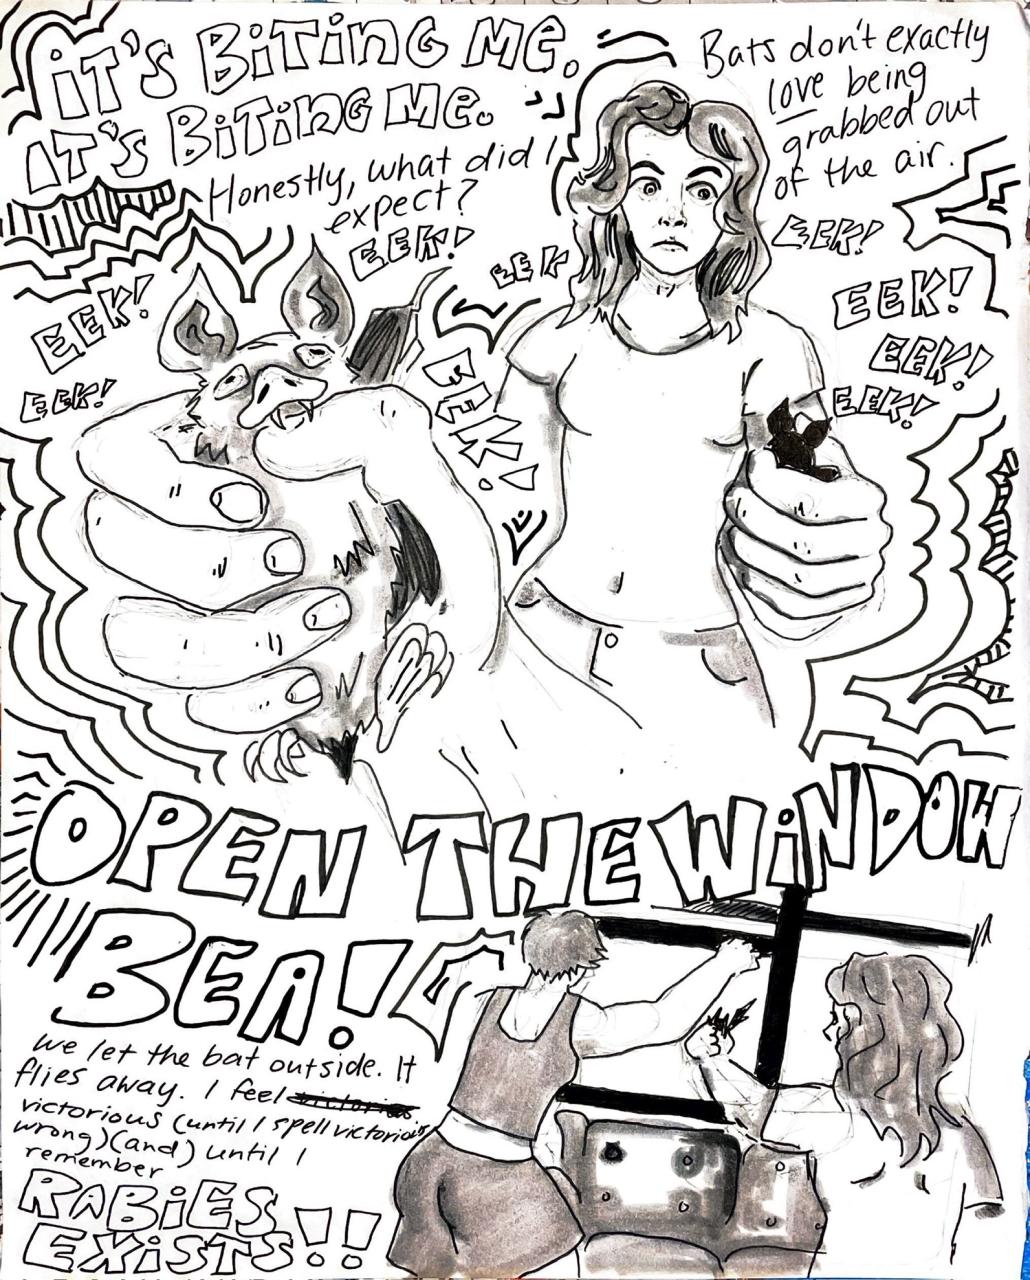 IT'S BITING ME.
IT'S BITING ME.
Honestly, what did I
expect?
Bats don't exactly
love being
grabbed out
of the air.
EEK!
EEK!
EEK!
EEK
EEK!
EEK!
EEK!
EEK!
EEK!
OPEN THE WINDOW
BEA!
We let the bat outside. It
flies away. I feel
victorious (until I spell victorious
wrong) (and) until I
remember
RABIES
EXISTS!!